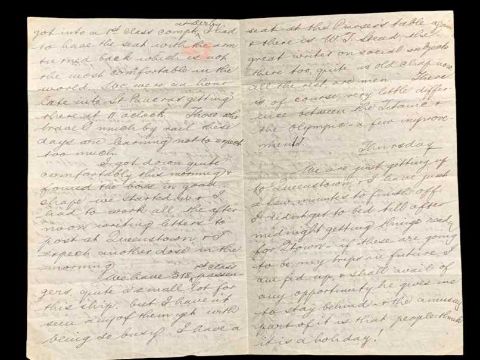 at Derby
got into a 1st class compt, & had
to have the seat with the arm
turned back which is not
the most comfortable in the
world. Soc were an hour
late into St Pancras getting
there at 11 oclock. Those who
travel much by rail these
days are learning not to expect
too much.
I got down quite
comfortably this morning &
found the boat in good
shape. We started by & I
had to work all the after
noon writing letters to
post at Queenstown & I
expect another dose in the
morning.
1st class
We have 318 passen
gers, quite a small lot for
this ship, but I have not
seen any of them yet with
being so busy. I have a
seat at the Purser's table again
& there is W.T. Stead the
great writer on social subjects
there too, quite an old chap now
all the rest are men. There
is of course very little differ
ence between the Titanic &
the Olympic - a few improve
ments!
Thursday
We are just getting up
to Queenstown & I have just
a few minutes to finish off.
I didn't get to bed till after
midnight getting things ready
for Itown - if these are going
to be my trips in future, I
am fed up, & shall avail of
any opportunity he gives me
to stay behind - & the amusing
part of it is that people think
it is a holiday!